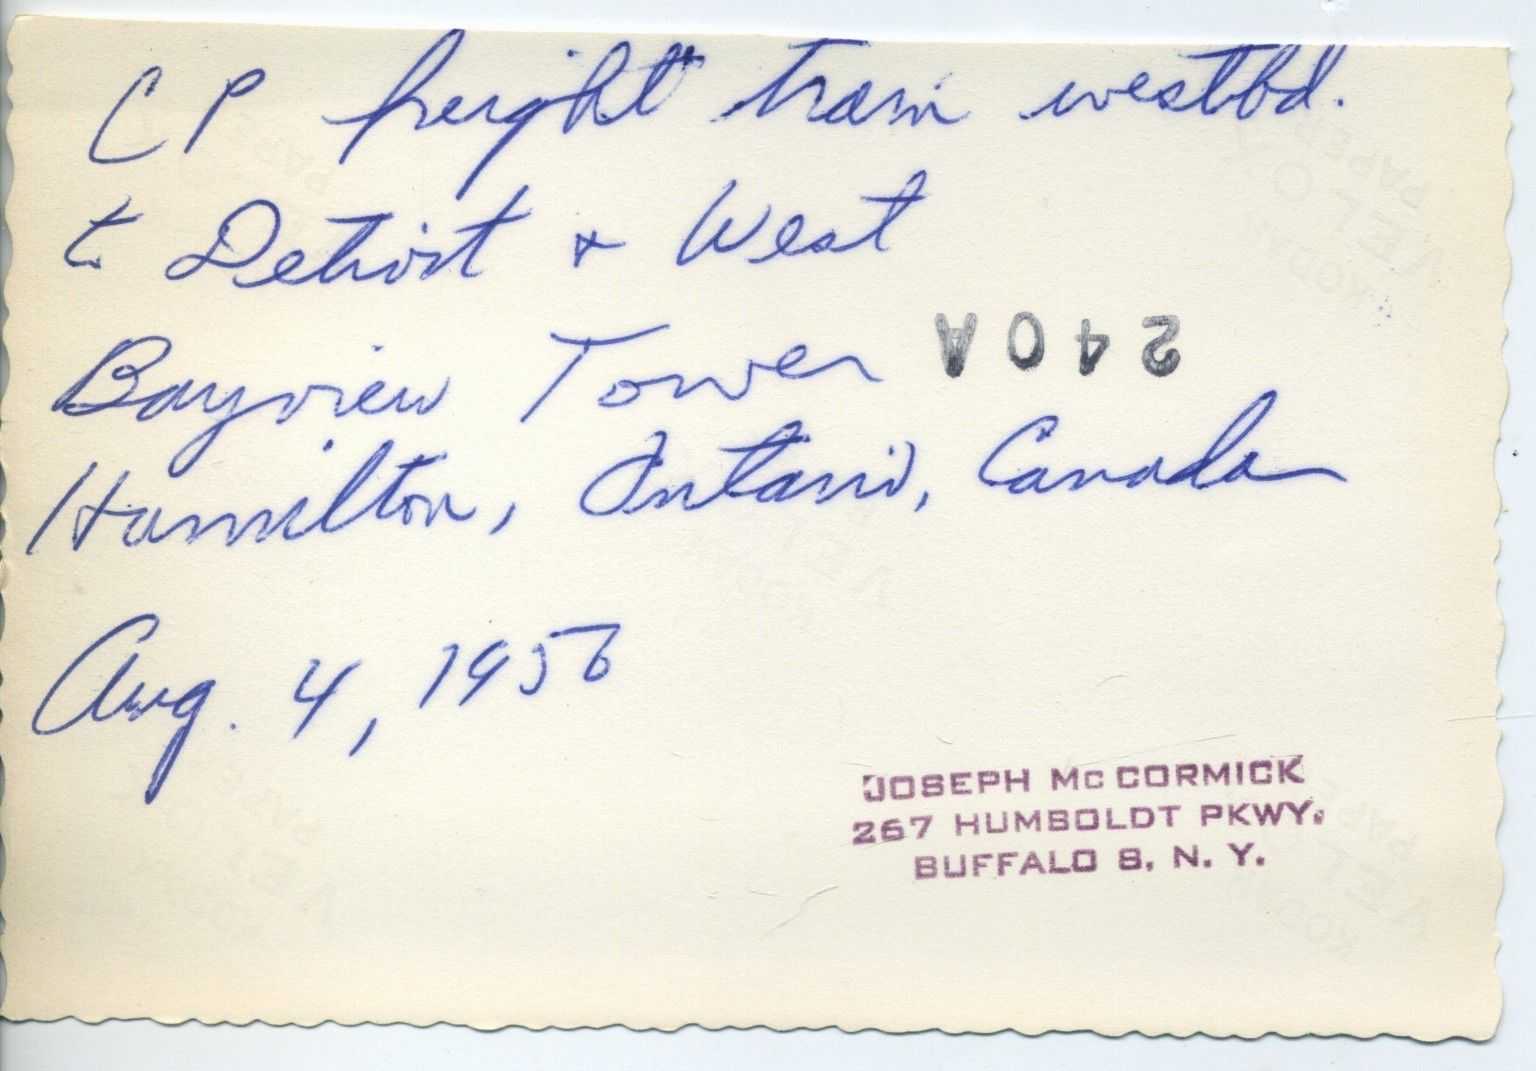 CP freight train westbd.
to Detroit + West
Bayview Tower
240A
Hamilton, Ontario, Canada
Aug. 4, 1956
JOSEPH McCORMICK
267 HUMBOLDT PKWY.
BUFFALO 8, N. Y.